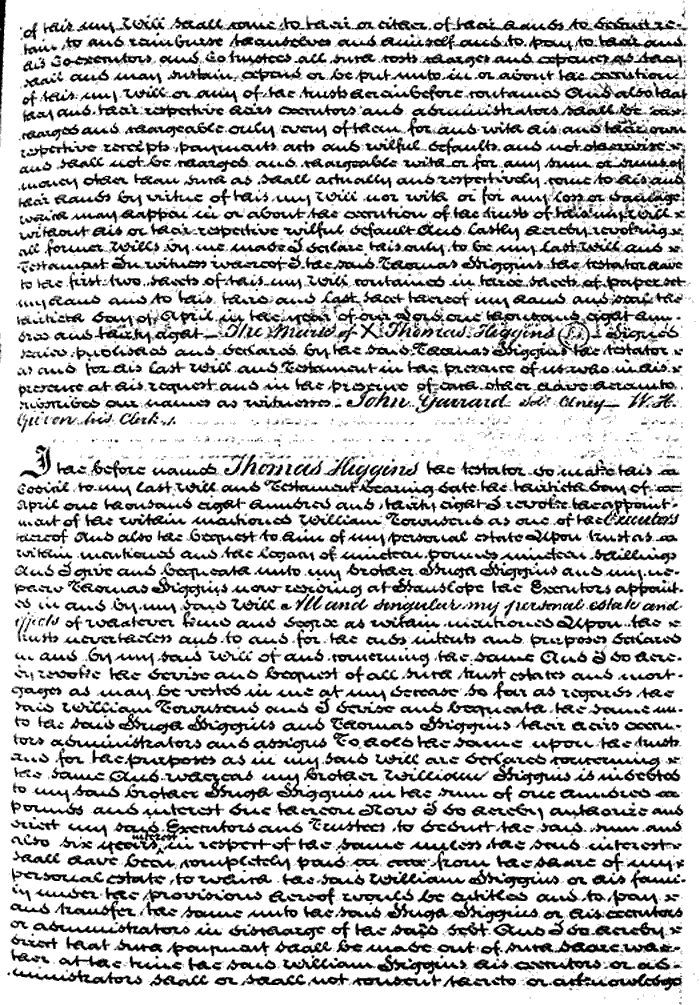 of this my Will shall come to their or either of their hands to deduct re-
tain to and reimburse themselves and himself and to pay to their and
his Co executors and Co trustees all such costs charges and expences as they
shall and may sustain expend or be put unto in or about the execution
of this my Will or any of the trusts hereinbefore contained And also that
they and their respective heirs executors and administrators shall be
charged and chargeable only every of them for and with his and their own
respective receipts payments acts and wilful defaults and not otherwise x
and shall not be charged and chargeable with or for any sum or sums of
money other than such as shall actually and respectively come to his and
their hands by virtue of this my Will nor with or for any loss or damage
which may happen in or about the execution of the trusts of this my Will x
without his or their respective wilful default And lastly hereby revoking x
all former Wills by me made I declare this only to be my last Will and x
Testament In witness whereof I the said Thomas Higgins the testator have
to the first two sheets of this my Will contained in three sheets of paper set
my hand and to this third and last sheet thereof my hand and seal the
thirtieth day of April in the year of our Lord one thousand eight hun-
dred and thirty eight – The Mark of X Thomas Higgins (L.S.) – Signed
sealed published and declared by the said Thomas Higgins the testator x
as and for his last Will and Testament in the presence of us who in his x
presence at his request and in the presence of each other have hereunto
subscribed our names as witnesses – John Garrard Solr. Olney – W. H.
his Clerk.
I the before named Thomas Higgins the testator do make this a
Codicil to my last Will and Testament bearing date the thirtieth day of
April one thousand eight hundred and thirty eight I revoke the appoint-
ment of the within mentioned William Townsend as one of the Executors
thereof And also the bequest to him of my personal estate Upon trust as
within mentioned and the legacy of nineteen pounds nineteen shillings
And I give and bequeath unto my brother Hugh Higgins and my ne-
phew Thomas Higgins now residing at Hanslope the Executors appoint-
ed in and by my said Will All and singular my personal estate and
effects of whatever kind and degree as within mentioned Upon the x
trusts nevertheless and to and for the ends intents and purposes declared
in and by my said Will of and concerning the same And I do here-
by revoke the devise and bequest of all such trust estates and mort-
gages as may be vested in me at my decease so far as regards the
said William Townsend and I devise and bequeath the same un-
to the said Hugh Higgins and Thomas Higgins their heirs execu-
tors administrators and assigns To hold the same upon the trusts
and for the purposes as in my said Will are declared concerning x
the same And whereas my brother William Higgins is indebted
to my said brother Hugh Higgins in the sum of one hundred
pounds and interest due thereon Now I do hereby authorize and
direct my said Executors and Trustees to deduct the said sum and
also six years interest in respect of the same unless the said interest x
shall have been completely paid from the share of my x
personal estate, to which the said William Higgins or his fami-
ly under the provisions hereof would be entitled and to pay x
and transfer the same unto the said Hugh Higgins or his executors
or administrators in discharge of the said debt And I do hereby x
direct that such payment shall be made out of such share whe-
ther at the time the said William Higgins his executors or ad-
ministrators shall or shall not consent thereto or acknowledge